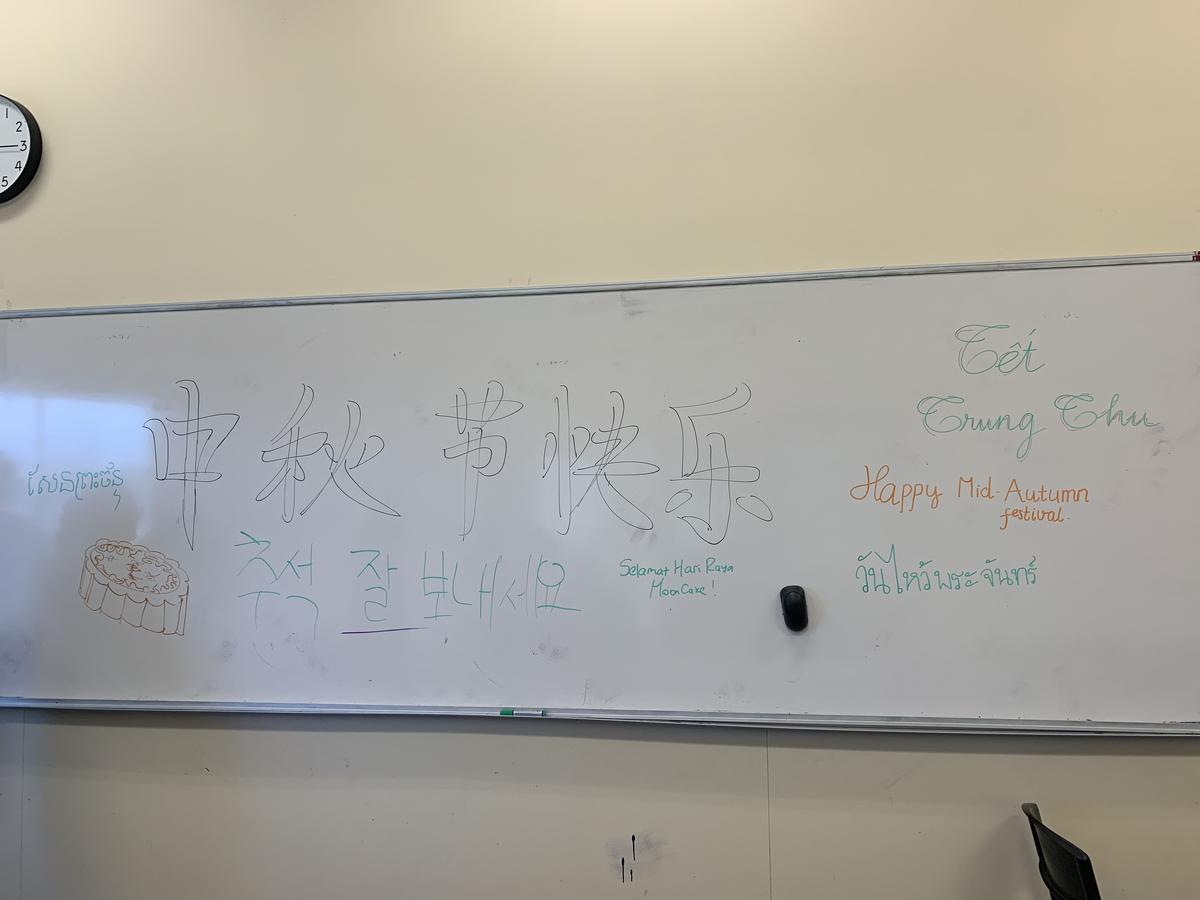 1
2
3
4
5
Tết
Trung Thu
中秋节快乐
សែនព្រះច័ន្ទ
Happy Mid-Autumn
festival.
추석 잘 보내세요
Selamat Hari Raya
MoonCake!
วันไหว้พระจันทร์